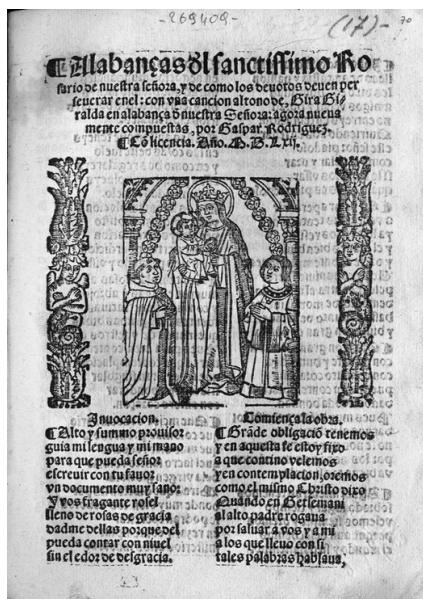 -269409-
(17)-
70
¶Alabanças đl sanctissimo Ro
sario de nuestra señora, y de como los deuotos deuen per
seuerar enel: con vna cancion al tono de, Gira Gi-
ralda en alabança đ nuestra Señora: agora nueua
mente compuestas, por Gaspar Rodriguez.
¶Cõ licencia. Año. M. D. Lxij.
Inuocacion.
¶Alto y summo prouisor
guia mi lengua y mi mano
para que pueda señor
escreuir con tu fauor
vn documento muy sano:
Y vos fragante rosel
lleno de rosas de gracia
dadme dellas porque del
pueda contar con niuel
sin el edor de desgracia.
Comiença la obra.
¶Grãde obligaciõ tenemos
y en aquesta fe estoy fixo
a que contino velemos
y en contemplacion, oremos
como el mismo Christo dixo
Quando en Getsemani
al alto padre rogaua
por saluar a vos y a mi
a los que lleuo con si
tales palabras hablaua,